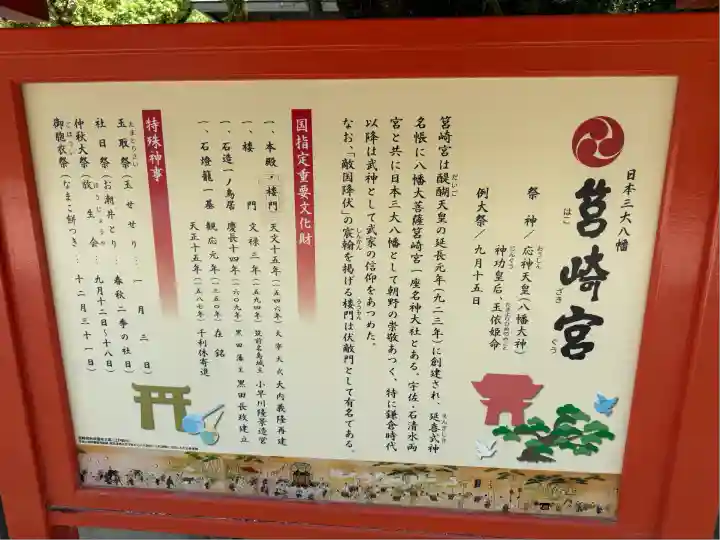 日本三大八幡
筥崎宮
はこ ざき ぐう
祭 神／応神天皇(八幡大神)
おうじん
神功皇后、玉依姫命
じんぐう たまよりひめのみこと
例大祭／九月十五日
筥崎宮は醍醐天皇の延長元年(九二三年)に創建され、延喜式神
だいご えんぎしき
名帳に八幡大菩薩筥崎宮一座名神大社とある。宇佐・石清水両
宮と共に日本三大八幡として朝野の崇敬あつく、特に鎌倉時代
以降は武神として武家の信仰をあつめた。
なお、「敵国降伏」の宸翰を掲げる楼門は伏敵門として有名である。
しんかん ろうもん
国指定重要文化財
一、本殿・楼門 天文十五年(一五四六年) 太宰大弐 大内義隆再建
一、楼 門 文禄三年(一五九四) 筑前名島城主 小早川隆景造営
一、石造一ノ鳥居 慶長十四年(一六〇九年) 黒田藩主 黒田長政建立
一、石燈籠一基 観応元年(一三五〇年) 在 銘
天正十五年(一五八七) 千利休寄進
特殊神事
玉取祭(玉せせり)… 一月三日)
たまとりさい
社日祭(お潮井とり)… 春秋二季の社日)
仲秋大祭(放生会)… 九月十二日〜十八日)
ほうじょうや
御胞衣祭(なまこ餅つき)… 十二月三十一日)